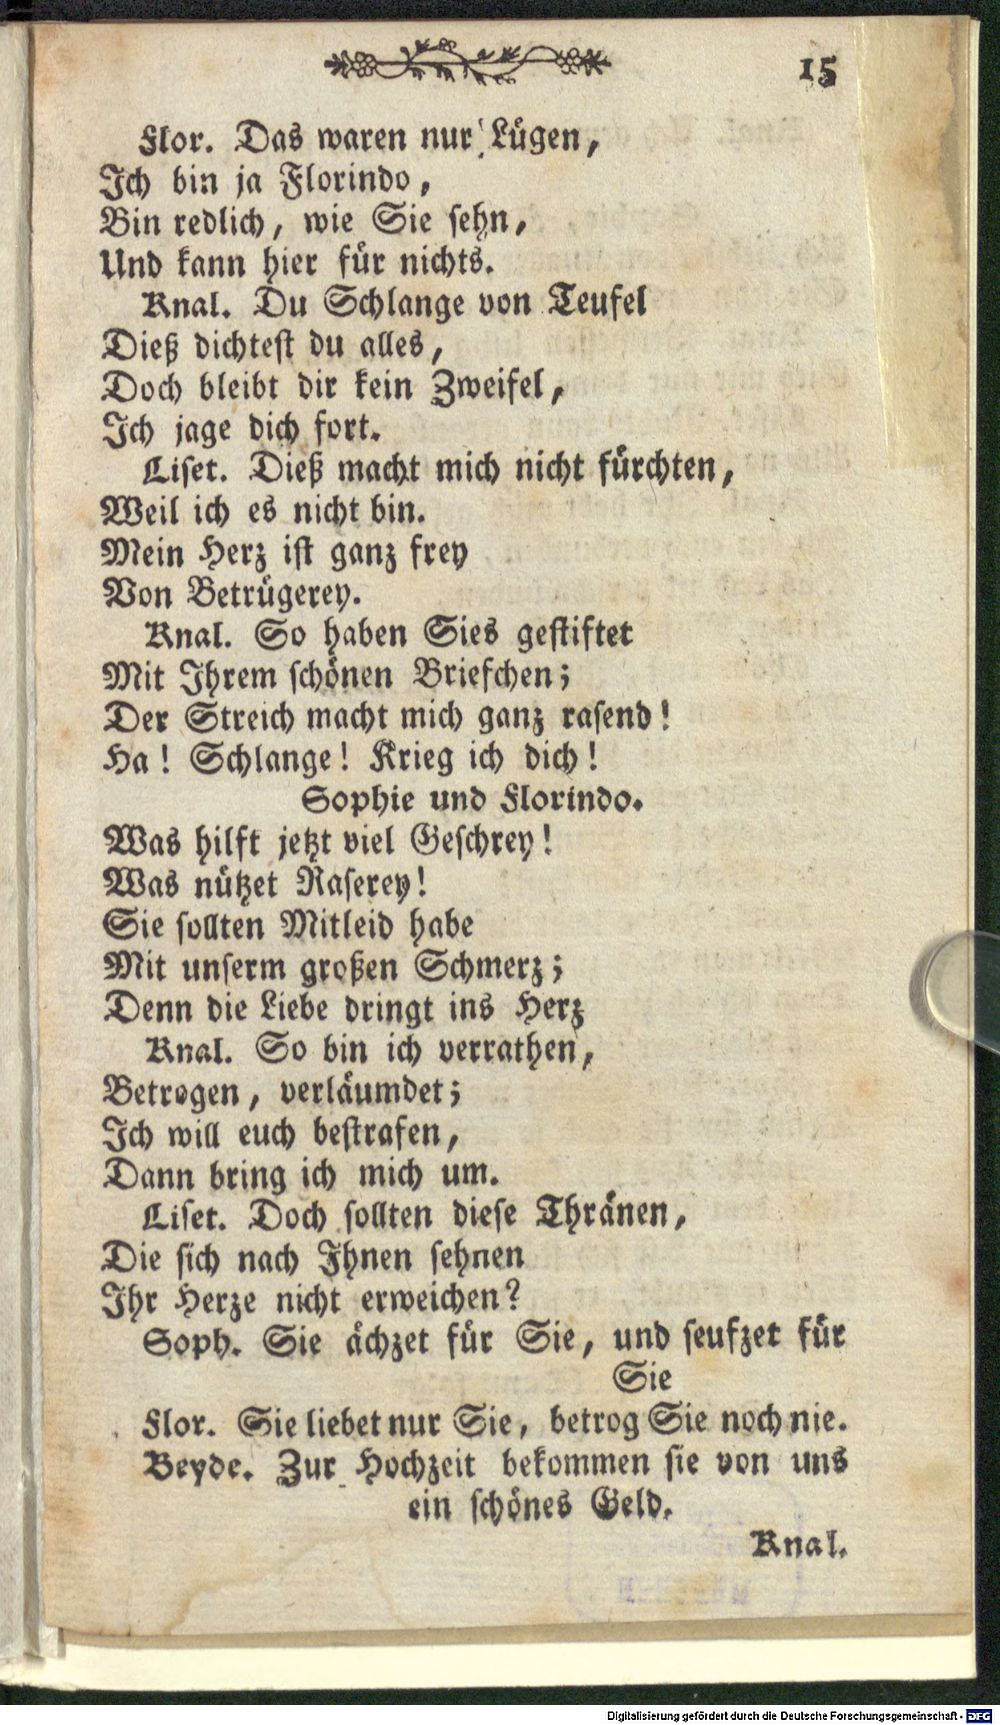 15
Flor. Das waren nur Lügen,
Ich bin ja Florindo,
Bin redlich, wie Sie sehn,
Und kann hier für nichts.
Knal. Du Schlange von Teufel
Dieß dichtest du alles,
Doch bleibt dir kein Zweifel,
Ich jage dich fort.
Liset. Dieß macht mich nicht fürchten,
Weil ich es nicht bin.
Mein Herz ist ganz frey
Von Betrügerey.
Knal. So haben Sies gestiftet
Mit Ihrem schönen Briefchen;
Der Streich macht mich ganz rasend!
Ha! Schlange! Krieg ich dich!
Sophie und Florindo.
Was hilft jetzt viel Geschrey!
Was nützet Raserey!
Sie sollten Mitleid habe
Mit unserm großen Schmerz;
Denn die Liebe dringt ins Herz
Knal. So bin ich verrathen,
Betrogen, verläumdet;
Ich will euch bestrafen,
Dann bring ich mich um.
Liset. Doch sollten diese Thränen,
Die sich nach Ihnen sehnen
Ihr Herze nicht erweichen?
Soph. Sie ächzet für Sie, und seufzet für
Sie
Flor. Sie liebet nur Sie, betrog Sie noch nie.
Beyde. Zur Hochzeit bekommen sie von uns
ein schönes Geld.
Knal.
Digitalisierung gefördert durch die Deutsche Forschungsgemeinschaft - DFG